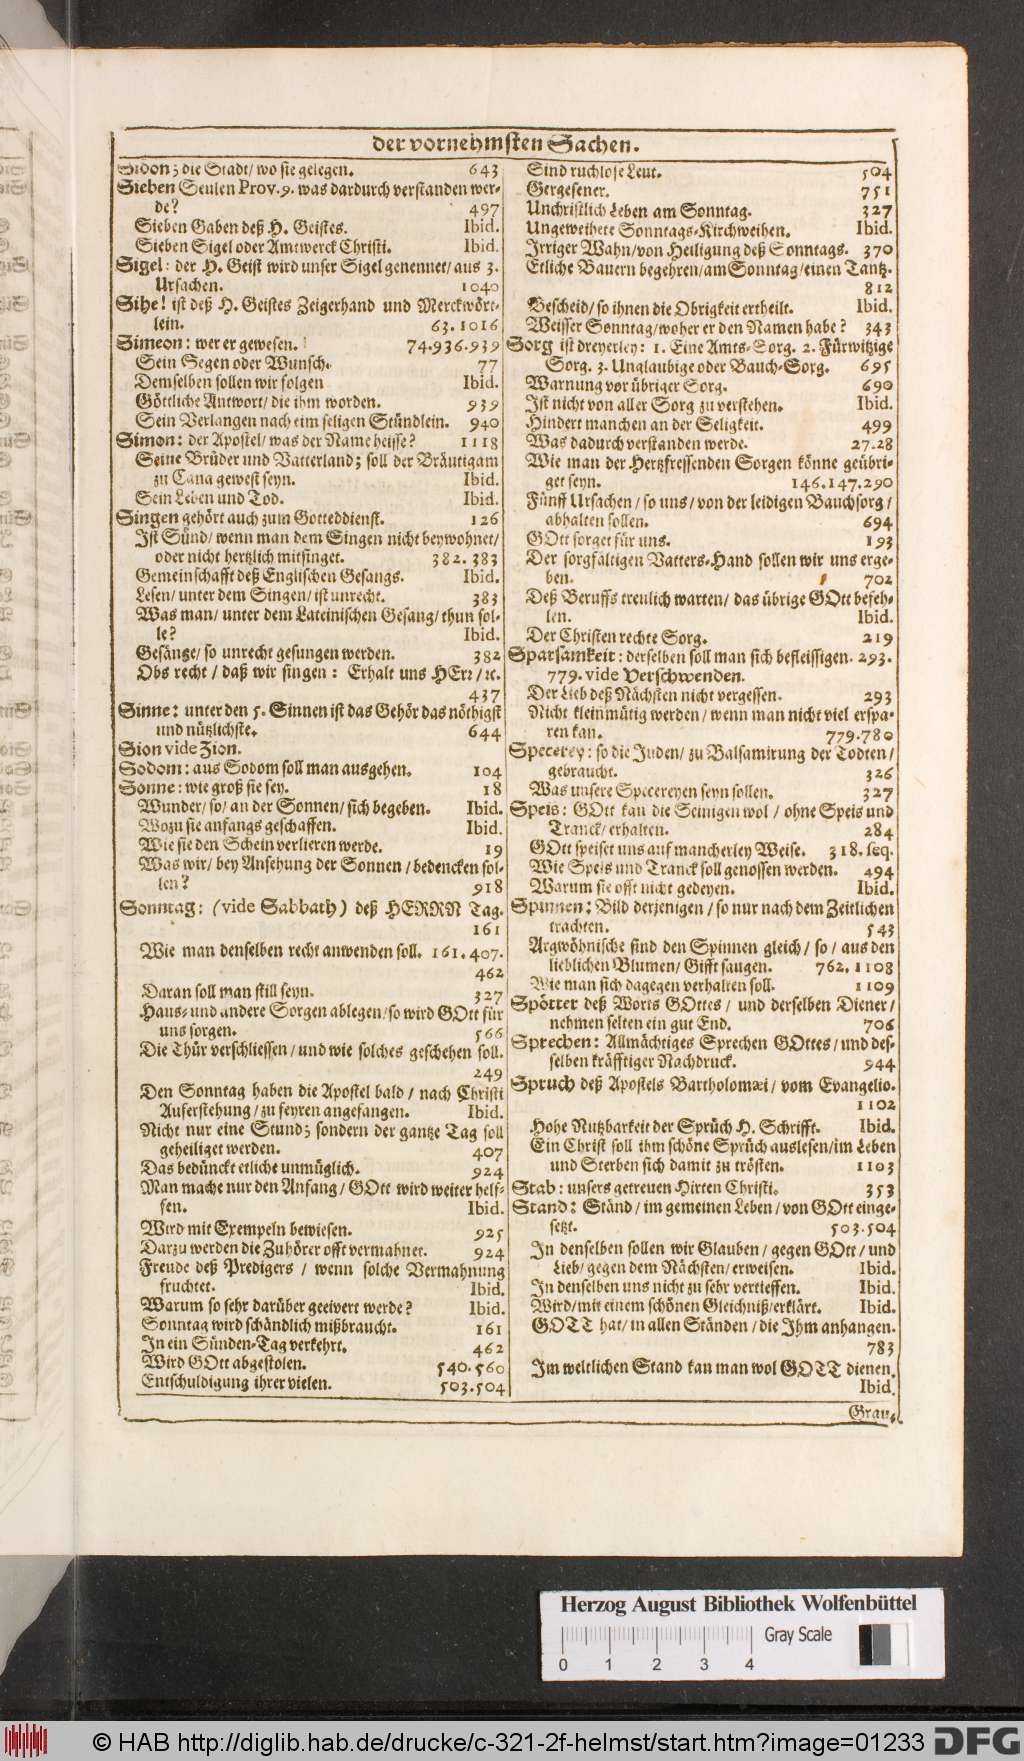 der vornehmsten Sachen.
Sidon; die Stadt/ wo sie gelegen. 643
Sieben Seulen Prov. 9. was dardurch verstanden wer-
de? 497
Sieben Gaben deß H. Geistes. Ibid.
Sieben Sigel oder Amtwerck Christi. Ibid.
Sigel: der H. Geist wird unser Sigel genennet/ aus 3.
Ursachen. 1040
Sihe! ist deß H. Geistes Zeigerhand und Merckwört-
lein. 63. 1016
Simeon: wer er gewesen. 74. 936. 939
Sein Segen oder Wunsch. 77
Demselben sollen wir folgen Ibid.
Göttliche Antwort/ die ihm worden. 939
Sein Verlangen nach eim seligen Stündlein. 940
Simon: der Apostel/ was der Name heisse? 1118
Seine Brüder und Vatterland; soll der Bräutigam
zu Cana gewest seyn. Ibid.
Sein Leben und Tod. Ibid.
Singen gehört auch zum Gottesdienst. 126
Ist Sünd/ wenn man dem Singen nicht beywohnet/
oder nicht hertzlich mitsinget. 382. 383
Gemeinschafft deß Englischen Gesangs. Ibid.
Lesen/ unter dem Singen/ ist unrecht. 383
Was man/ unter dem Lateinischen Gesang/ thun sol-
le? Ibid.
Gesänge/ so unrecht gesungen werden. 382
Obs recht/ daß wir singen: Erhalt uns HErr/ ꝛc.
437
Sinne: unter den 5. Sinnen ist das Gehör das nöthigst
und nützlichste. 644
Sion vide Zion.
Sodom: aus Sodom soll man ausgehen. 104
Sonne: wie groß sie sey. 18
Wunder/ so/ an der Sonnen/ sich begeben. Ibid.
Wozu sie anfangs geschaffen. Ibid.
Wie sie den Schein verlieren werde. 19
Was wir/ bey Ansehung der Sonnen/ bedencken sol-
len? 918
Sonntag: (vide Sabbath) deß HERRN Tag.
161
Wie man denselben recht anwenden soll. 161. 407.
462
Daran soll man still seyn. 327
Haus- und andere Sorgen ablegen/ so wird GOtt für
uns sorgen. 566
Die Thür verschliessen/ und wie solches geschehen soll.
249
Den Sonntag haben die Apostel bald/ nach Christi
Auferstehung/ zu feyren angefangen. Ibid.
Nicht nur eine Stund; sondern der gantze Tag soll
geheiliget werden. 407
Das bedünckt etliche unmüglich. 924
Man mache nur den Anfang/ GOtt wird weiter helf-
fen. Ibid.
Wird mit Exempeln bewiesen. 925
Darzu werden die Zuhörer offt vermahnet. 924
Freude deß Predigers/ wenn solche Vermahnung
fruchtet. Ibid.
Warum so sehr darüber geeivert werde? Ibid.
Sonntag wird schändlich mißbraucht. 161
In ein Sünden-Tag verkehrt. 462
Wird GOtt abgestolen. 540. 560
Entschuldigung ihrer vielen. 503. 504
Sind ruchlose Leut. 504
Gergesener. 751
Unchristlich Leben am Sonntag. 327
Ungeweihete Sonntags-Kirchweihen. Ibid.
Irriger Wahn/ von Heiligung deß Sonntags. 370
Etliche Bauern begehren/ am Sonntag/ einen Tantz.
812
Bescheid/ so ihnen die Obrigkeit ertheilt. Ibid.
Weisser Sonntag/ woher er den Namen habe? 343
Sorg ist dreyerley: 1. Eine Amts-Sorg. 2. Fürwitzige
Sorg. 3. Unglaubige oder Bauch-Sorg. 695
Warnung vor übriger Sorg. 690
Ist nicht von aller Sorg zu verstehen. Ibid.
Hindert manchen an der Seligkeit. 499
Was dadurch verstanden werde. 27. 28
Wie man der Hertzfressenden Sorgen könne geübri-
get seyn. 146. 147. 290
Fünff Ursachen/ so uns/ von der leidigen Bauchsorg/
abhalten sollen. 694
GOtt sorget für uns. 193
Der sorgfältigen Vatters-Hand sollen wir uns erge-
ben. 702
Deß Beruffs treulich warten/ das übrige GOtt befeh-
len. Ibid.
Der Christen rechte Sorg. 219
Sparsamkeit: derselben soll man sich befleissigen. 293.
779. vide Verschwenden.
Der Lieb deß Nächsten nicht vergessen. 293
Nicht kleinmütig werden/ wenn man nicht viel erspa-
ren kan. 779. 780
Specerey: so die Juden/ zu Balsamirung der Todten/
gebraucht. 326
Was unsere Specereyen seyn sollen. 327
Speis: GOtt kan die Seinigen wol/ ohne Speis und
Tranck/ erhalten. 284
GOtt speiset uns auf mancherley Weise. 318. seq.
Wie Speis und Tranck soll genossen werden. 494
Warum sie offt nicht gedeyen. Ibid.
Spinnen: Bild derjenigen/ so nur nach dem Zeitlichen
trachten. 543
Argwöhnische sind den Spinnen gleich/ so/ aus den
lieblichen Blumen/ Gifft saugen. 762. 1108
Wie man sich dagegen verhalten soll. 1109
Spötter deß Worts GOttes/ und derselben Diener/
nehmen selten ein gut End. 706
Sprechen: Allmächtiges Sprechen GOttes/ und des-
selben kräfftiger Nachdruck. 944
Spruch deß Apostels Bartholomæi/ vom Evangelio.
1102
Hohe Nutzbarkeit der Sprüch H. Schrifft. Ibid.
Ein Christ soll ihm schöne Sprüch auslesen/ im Leben
und Sterben sich damit zu trösten. 1103
Stab: unsers getreuen Hirten Christi. 353
Stand: Ständ/ im gemeinen Leben/ von GOtt einge-
setzt. 503. 504
In denselben sollen wir Glauben/ gegen GOtt/ und
Lieb/ gegen dem Nächsten/ erweisen. Ibid.
In denselben uns nicht zu sehr vertieffen. Ibid.
Wird/ mit einem schönen Gleichniß/ erklärt. Ibid.
GOTT hat/ in allen Ständen/ die Ihm anhangen.
783
Im weltlichen Stand kan man wol GOTT dienen.
Ibid.
Grau-
Herzog August Bibliothek Wolfenbüttel
Gray Scale
0 1 2 3 4
© HAB http://diglib.hab.de/drucke/c-321-2f-helmst/start.htm?image=01233
DFG